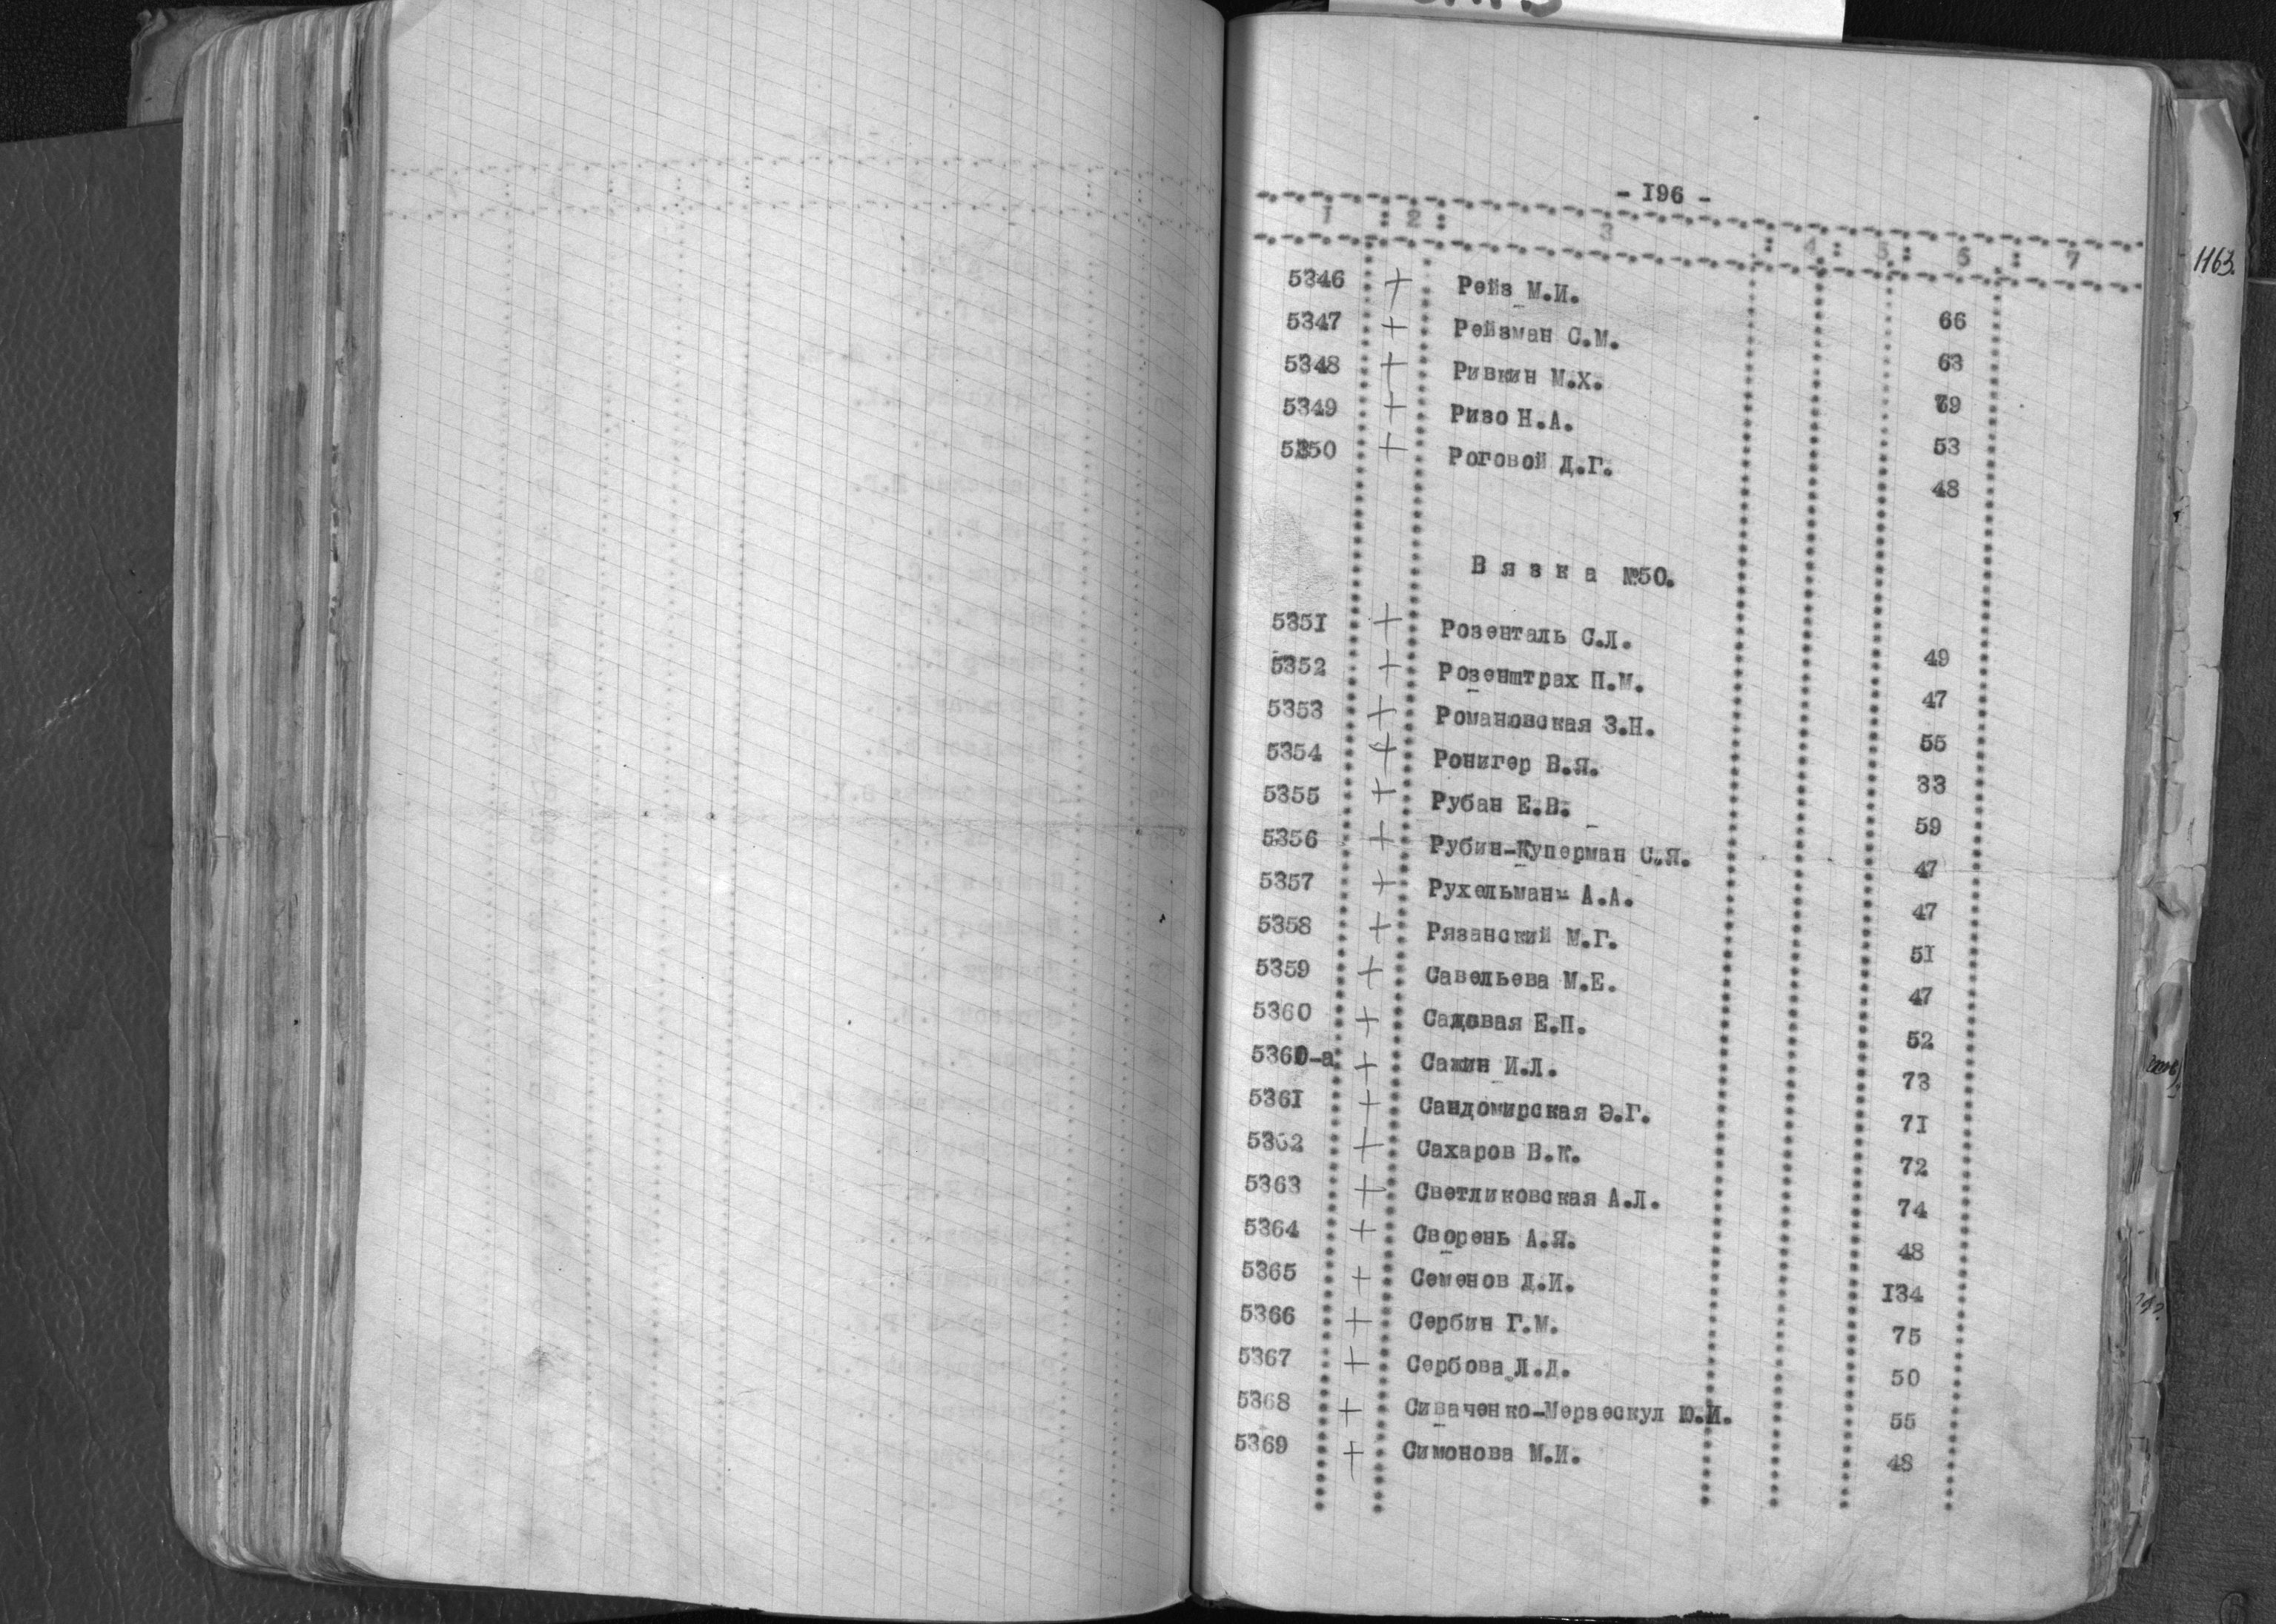 - I96 -
1 : 2 : 3 : 4 : 5 : 6 : 7
1163.
5346 + Рейз М.И. 66
5347 + Рейзман С.М. 63
5348 + Ривкин М.Х. 79
5349 + Ризо Н.А. 53
5350 + Роговой Д.Г. 48
В я з к а №50.
535I + Розенталь С.Л. 49
5352 + Розенштрах П.М. 47
5353 + Романовская З.Н. 55
5354 + Ронигер В.Я. 33
5355 + Рубан Е.В. 59
5356 + Рубин-Куперман С.Я. 47
5357 + Рухельман- А.А. 47
5358 + Рязанский М.Г. 5I
5359 + Савельева М.Е. 47
5360 + Садовая Е.П. 52
5360-а + Сажин И.Л. 73
536I + Сандомирская Э.Г. 7I
5362 + Сахаров В.К. 72
5363 + Светликовская А.Л. 74
5364 + Сворень А.Я. 48
5365 + Семенов Д.И. I34
5366 + Сербин Г.М. 75
5367 + Сербова Л.Д. 50
5368 + Сиваченко-Мерзескул Ю.И. 55
5369 + Симонова М.И. 48